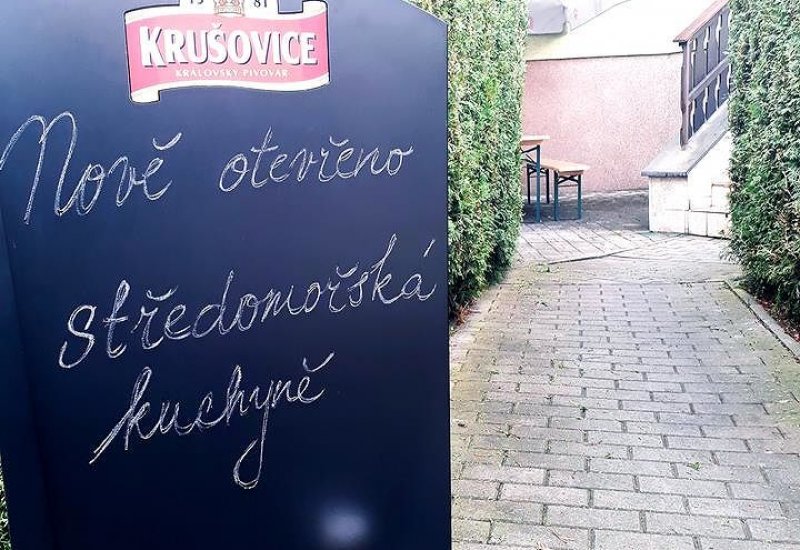 1581
KRUŠOVICE
KRÁLOVSKÝ PIVOVAR
Nově otevřeno
středomořská
kuchyně